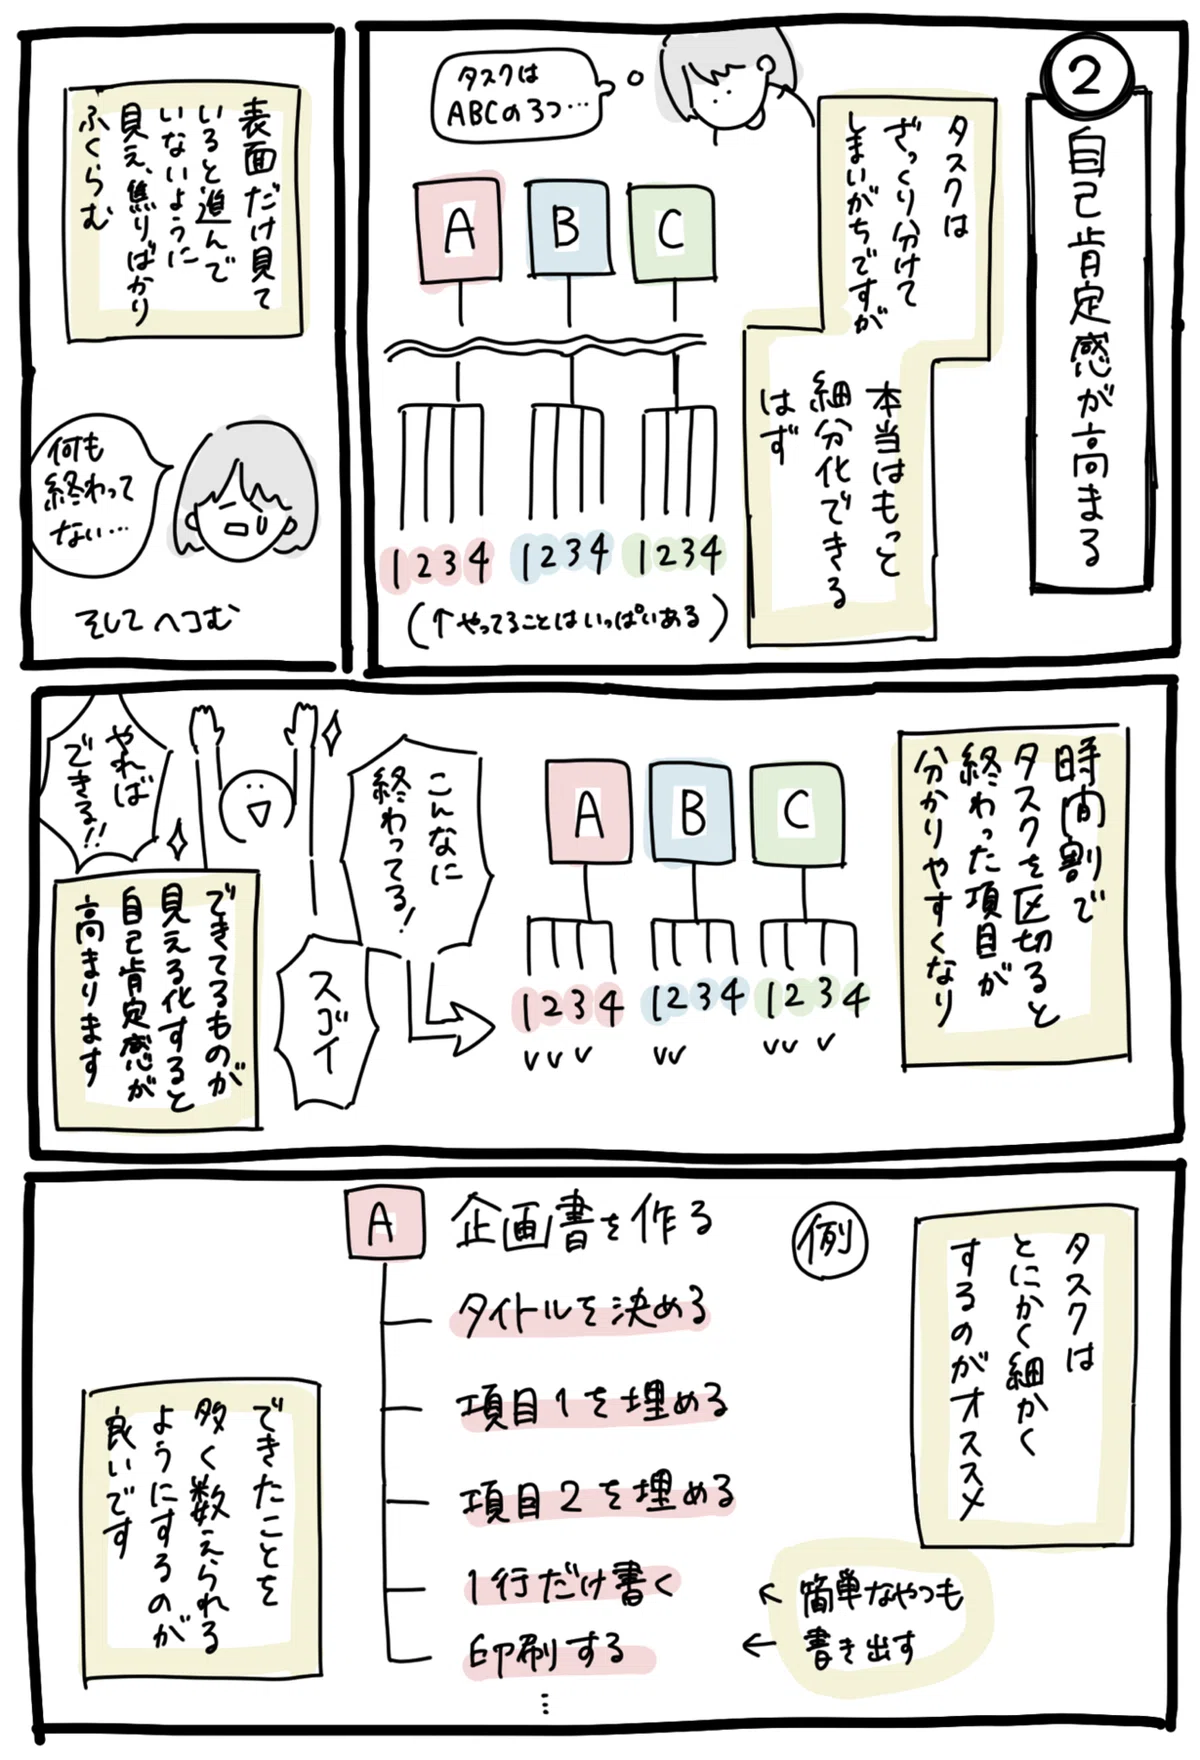 ②
自己肯定感が高まる
タスクは
ざっくり分けて
しまいがちですが
本当はもっと
細分化できる
はず
タスクは
ABCの3つ…
A B C
1234 1234 1234
(↑やってることはいっぱいある)
表面だけ見て
いると進んで
いないように
見え、焦りばかり
ふくらむ
何も
終わって
ない…
そしてヘコむ
時間割で
タスクを区切ると
終わった項目が
分かりやすくなり
A B C
1234 1234 1234
こんなに
終わってる!
スゴイ
やれば
できる!!
できてるものが
見える化すると
自己肯定感が
高まります
タスクは
とにかく細かく
するのがオススメ
例
A 企画書を作る
タイトルを決める
項目1を埋める
項目2を埋める
1行だけ書く
印刷する
⋮
← 簡単なやつも
← 書き出す
できたことを
多く数えられる
ようにするのが
良いです